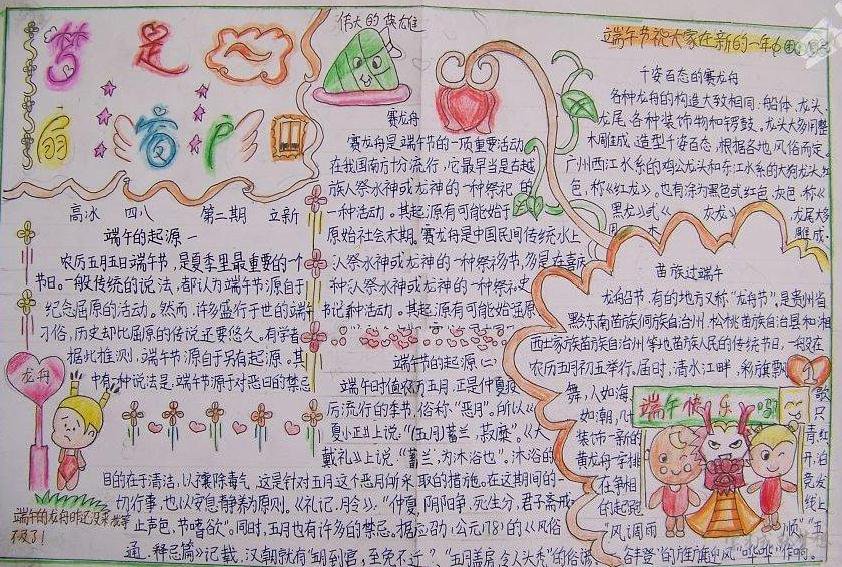 梦 是
扇 窗 户
高冰 四八 第二期 立新
端午的起源一
农历五月五日端午节，是夏季里最重要的一个
节日。一般传统的说法，都认为端午节源自于
纪念屈原的活动。然而，许多盛行于世的端午
习俗，历史却比屈原的传说还要悠久。有学者
据此推测，端午节源自于另有起源。其
中有一种说法是：端午节源于对恶日的禁忌
龙舟
端午的龙舟时还没来
不及了！
伟大的英雄
赛龙舟
赛龙舟是端午节的一项重要活动
在我国南方十分流行，它最早当是古越
族人祭水神或龙神的一种祭祀的
一种活动。其起源有可能始于
原始社会末期。赛龙舟是中国民间传统水上
人祭水神或龙神的一种祭祀节，多是在喜庆
种人祭水神或龙神的一种祭祀
种活动。其起源有可能始
端午节的起源(二)
端午时值仲夏五月，正是仲夏
厉流行的季节，俗称"恶月"。所以《
夏小正》上说："(五月)蓄兰，菽糜。《大
戴礼》上说："蓄兰，为沐浴也"。沐浴的
目的在于清洁，以禳除毒气，这是针对五月这个恶月所采取的措施。在这期间的一
切行事，也以安息静养为原则。《礼记，月令》："仲夏，阴阳争，死生分，君子斋戒
止声色，节嗜欲"。同时，五月也有许多的禁忌。据应劭(公元178)的《风俗
通，释忌篇》记载，汉朝就有"五月到官，至免不迁"、"五月盖屋，令人头秃"的俗谚
端午节祝大家在新的一年
千姿百态的赛龙舟
各种龙舟的构造大致相同：船体、龙头、
龙尾、各种装饰物和锣鼓。龙头大多用整
木雕成，造型千姿百态，根据各地风俗而定。
广州西江水系的鸡公龙头和东江水系的大狗龙头，红
色，称《红龙》，也有涂为黑色式红色、灰色，称《
黑龙》式《 灰龙》 龙尾大多
用 木 雕成
苗族过端午
龙舟节，有的地方又称"龙舟节"，是贵州省
黔东南苗族侗族自治州、松桃苗族自治县和湘
西土家族苗族自治州等地苗族人民的传统节日，一般在
农历五月初五举行。届时，清水江畔，彩旗飘
舞，人如海， 歌
如潮，几十 只
装饰一新的 青红
黄龙舟一字排 开，泊
在争相 竞发
的起跑 线上
"风调雨 顺""五
谷丰登"的旌旗迎风"哗哗"作响。
端午快乐